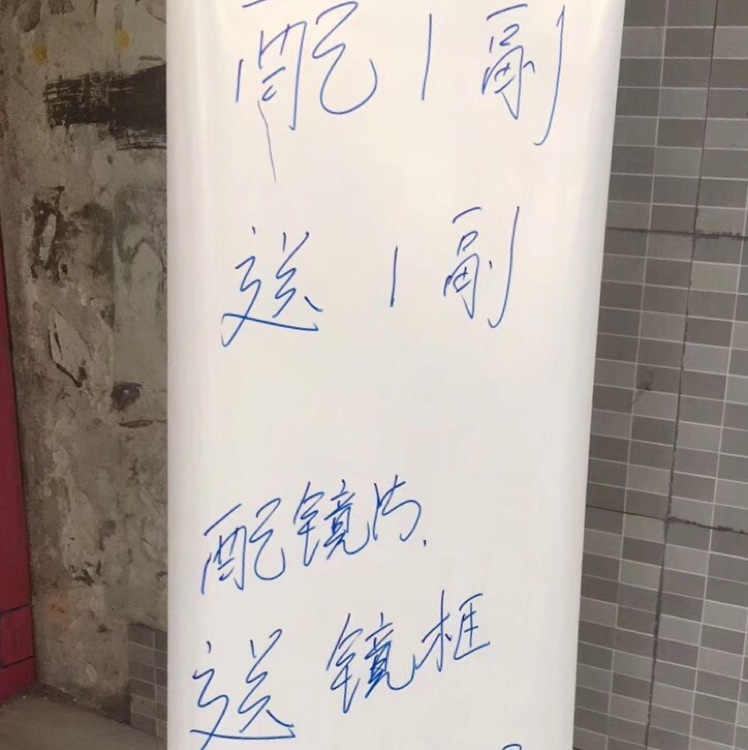 配1副
送1副
配镜片.
送镜框